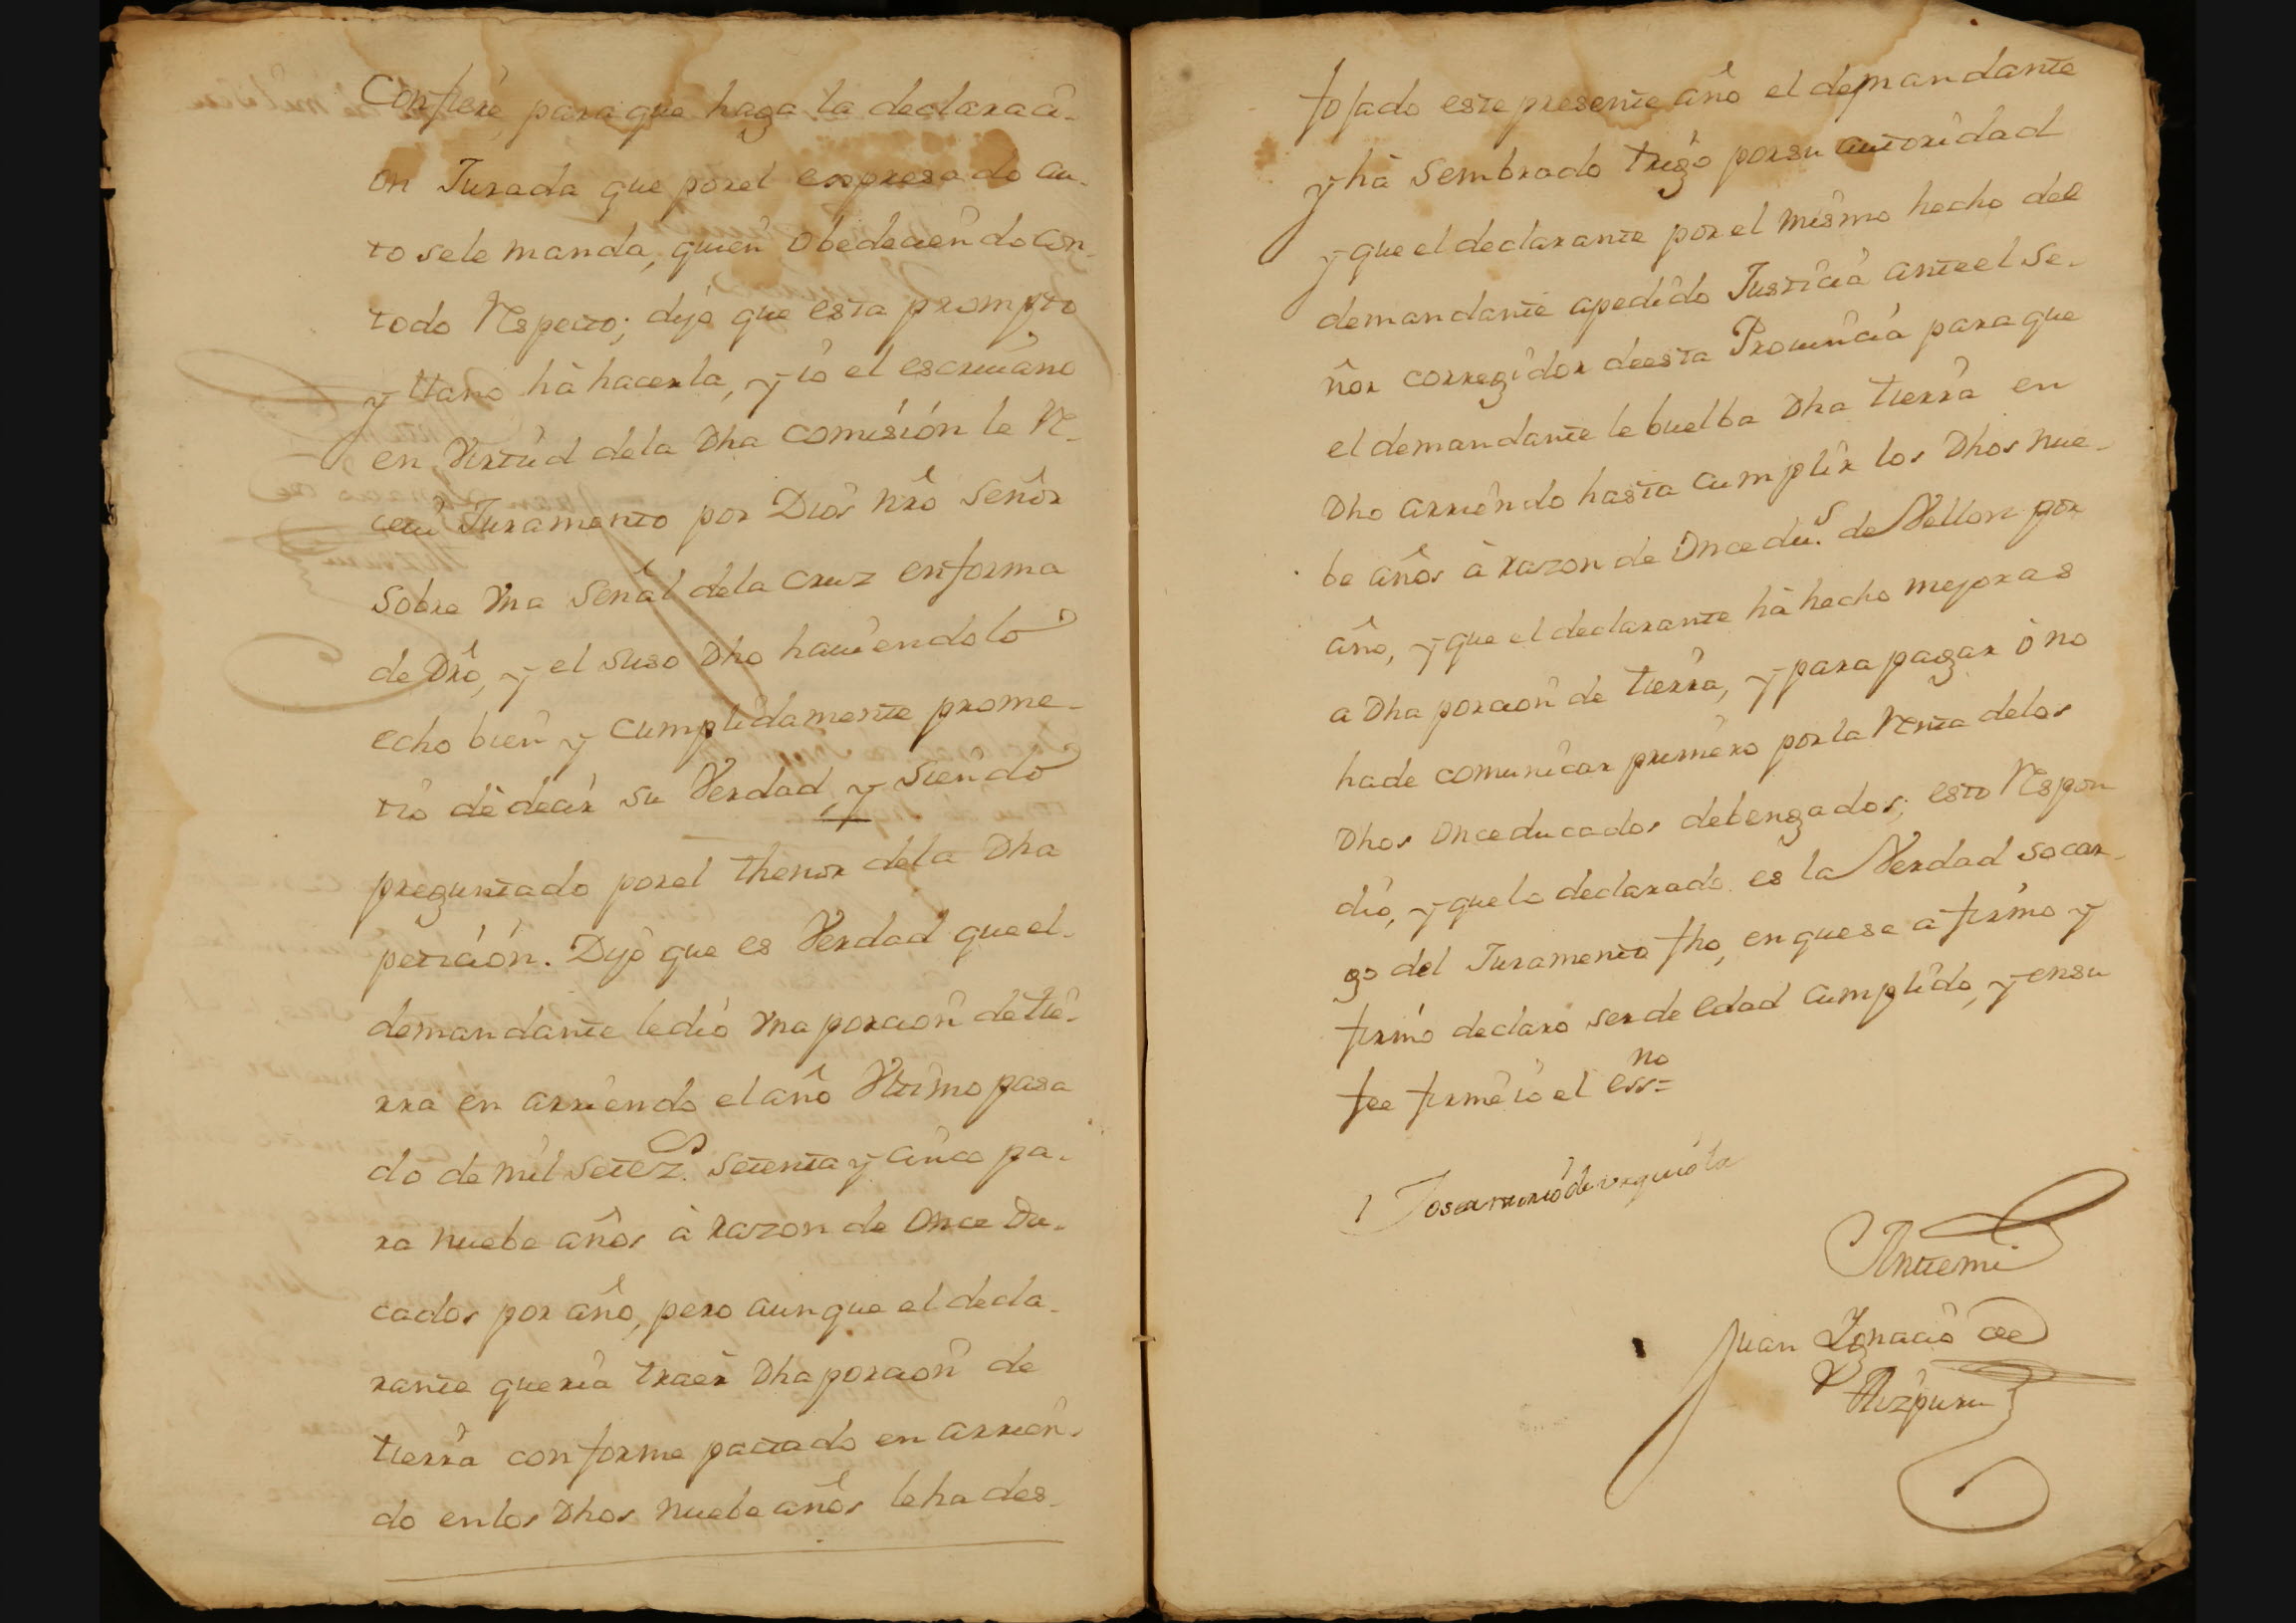 Confiere para que haga la declaraci-
on Jurada que por el expresado au-
to sele manda, quien obedeciendo con
todo Respecto; dijo que esta prompto
y llano hà hacerla, y io el escriuano
en Virtud dela Dha comision le Re-
ceui Juramento por Dios nrô Señor
Sobre Vna Señal dela Cruz en forma
de Drô, y el suso Dho hauiendolo
echo bien y cumplidamente prome-
tio dè decir su Verdad, y siendo
preguntado por el thenor dela Dha
peticiòn. Dijo que es Verdad que el-
demandante ledio Vna porcion de tie-
rra en arriendo el año Vltimo pasa
do de mil setez.s setenta y cinco pa-
ra nuebe años à razon de Once Du-
cados por año, pero aunque el decla-
rante queria traer Dha porcion de
tierra conforme pactado en arrien-
do enlos Dhos nuebe años leha des-
fofado este presente año el demandante
y hà sembrado trigo porsu autoridad
y que el declarante por el mismo hecho del
demandante apedido Justicia anteel Se-
ñor corregidor deesta Prouincia para que
el demandante le buelba Dha tierra en
Dho arriendo hasta cumplir los Dhos nue-
be años à razon de Once du.s de Vellon por
año, y que el declarante hà hecho mejoras
a Dha porcion de tierra, y para pagar ò no
hade comunicar primero por la Renta delos
Dhos Once ducados debengados; esto Respon
dio, y que lo declarado es la Verdad so car-
go del Juramento fho, en que se afirmo y
firmo declaro ser de edad cumplido, y ensu
fee firme io el ess.no=
Joseantoniode urquiola
Antemi
Juan Ignacio de
Aizpuru